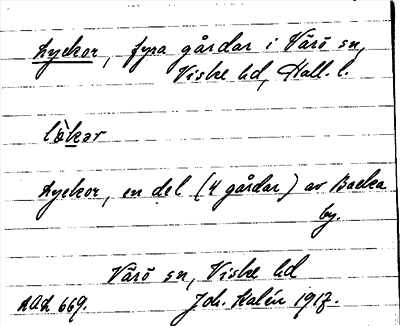 Lyckor, fyra gårdar i Värö sn,
Viske hd, Hall. l.
lö̀kər
Lyckor, en del (4 gårdar) av Backa
by.
Värö sn, Viske hd
Joh. Kalén 1917.
669.